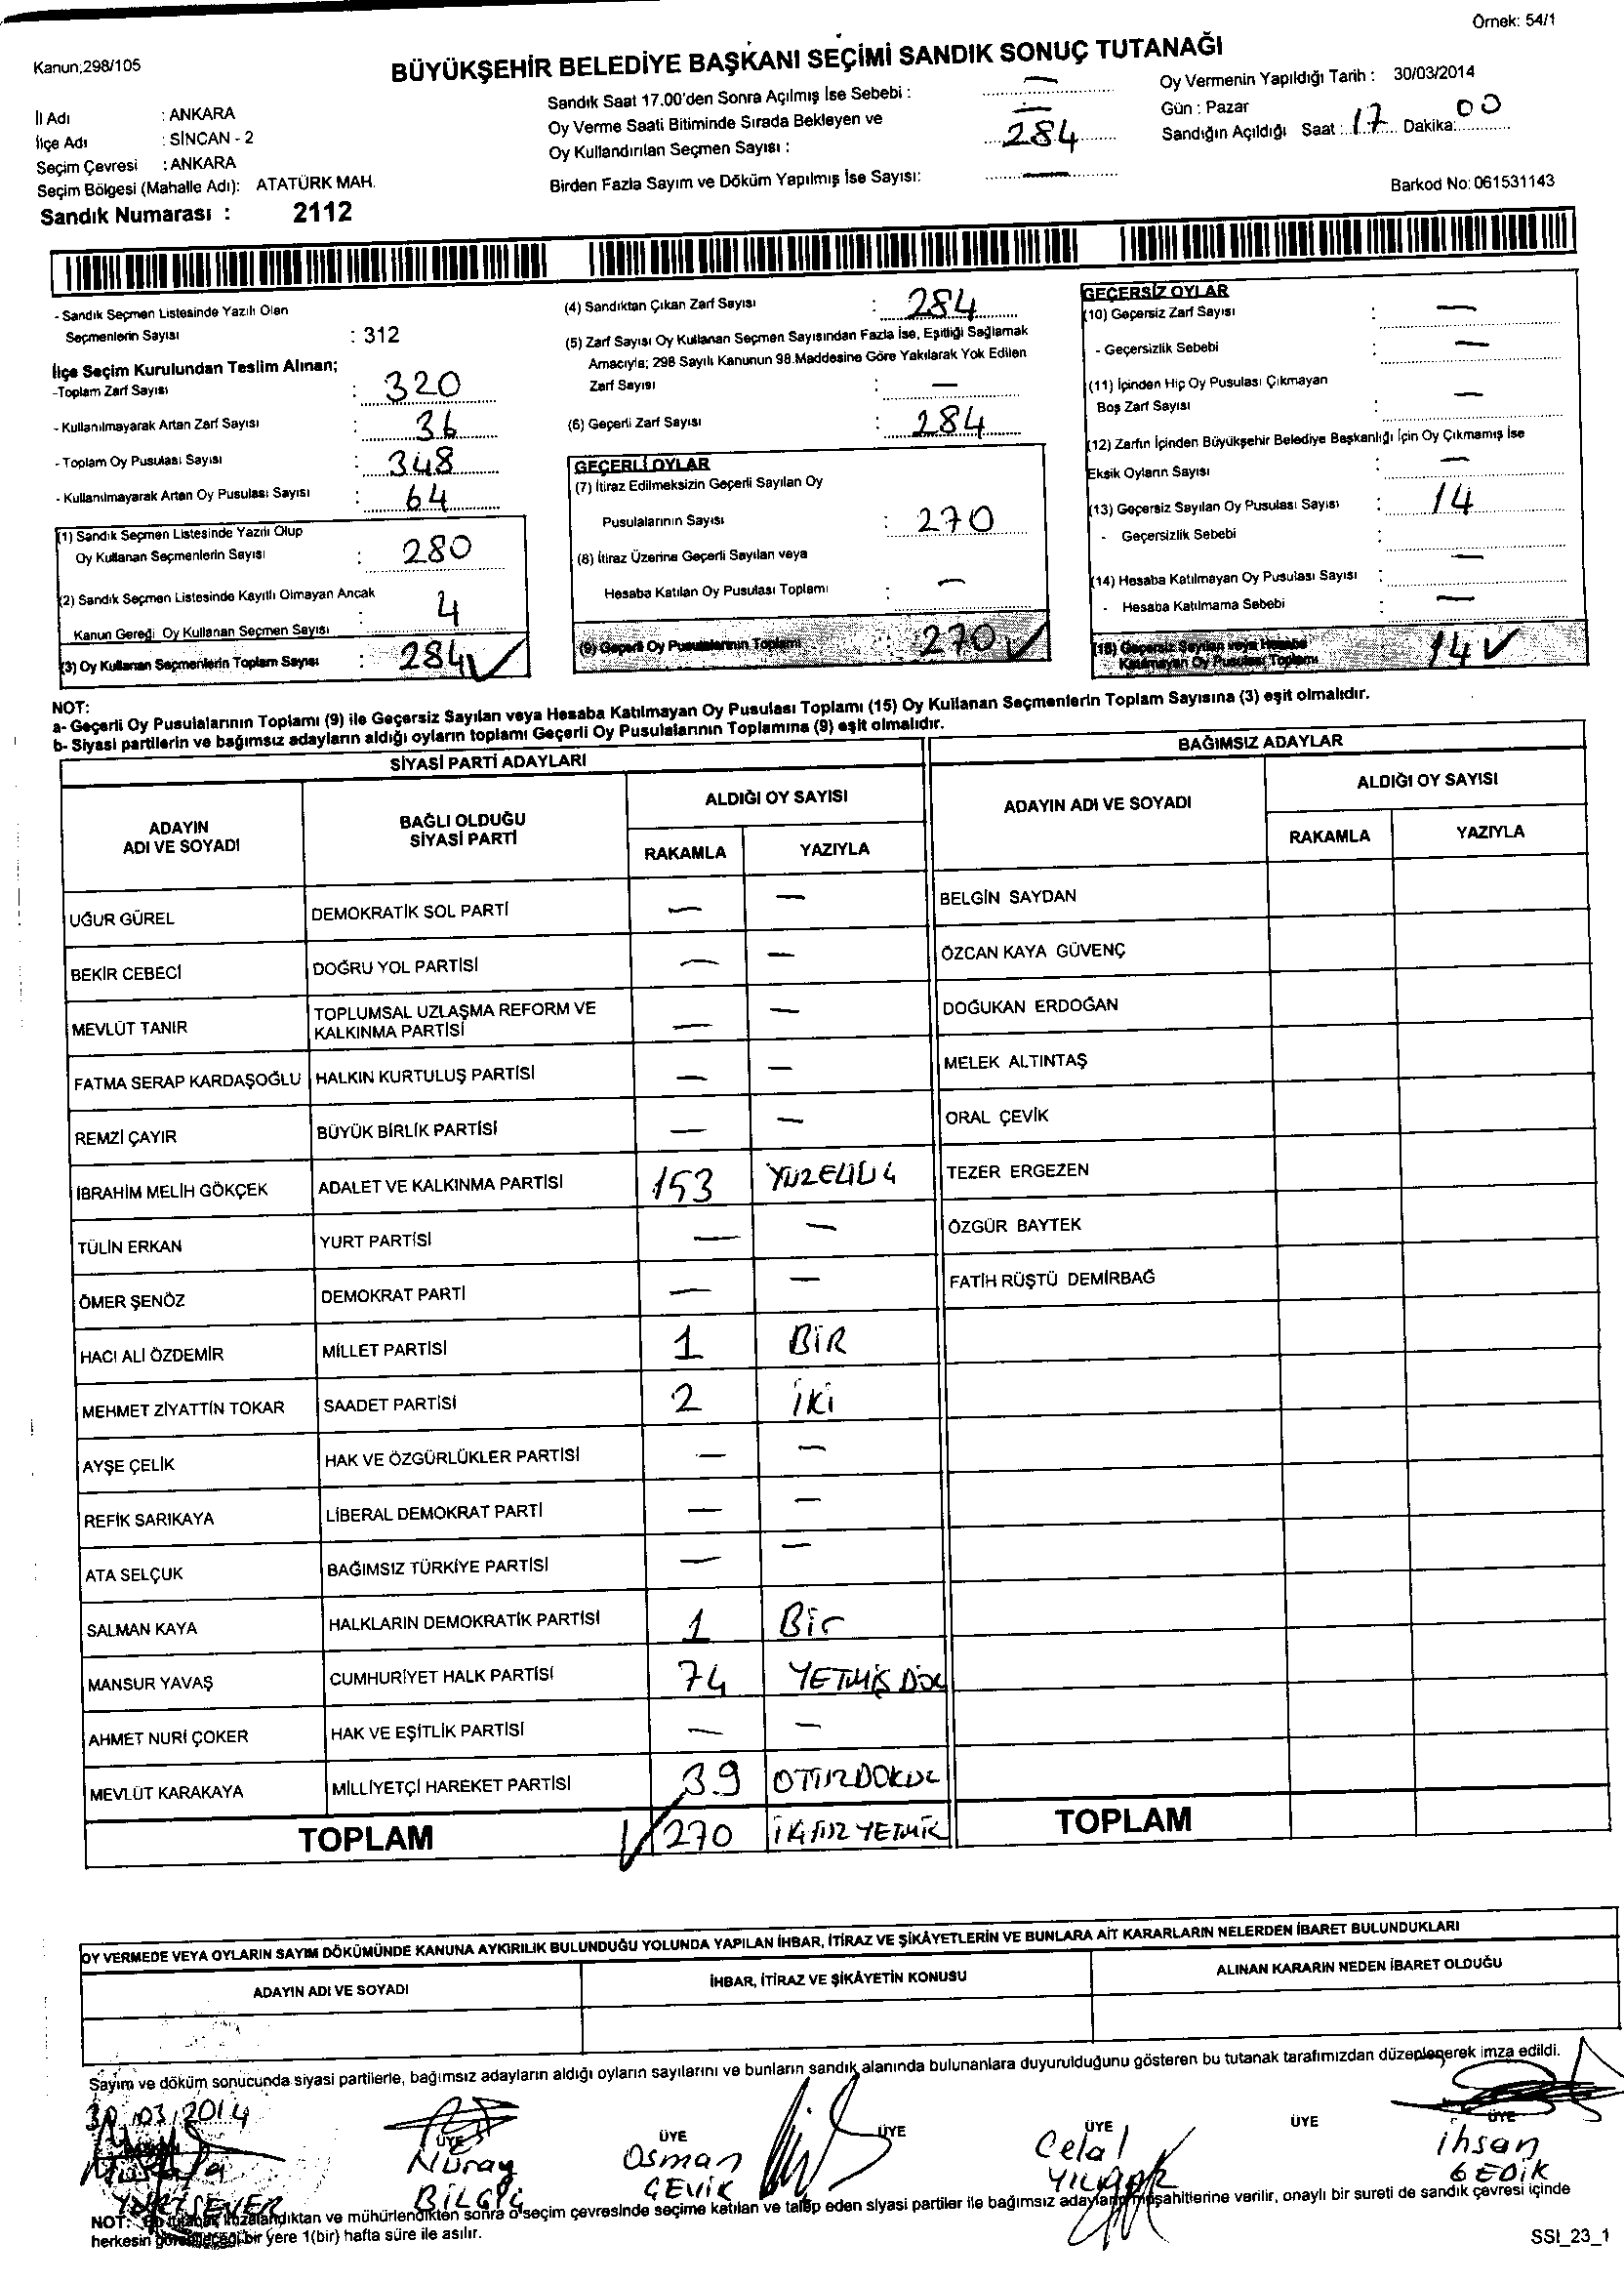 Örnek: 54/1
Kanun;298/105
BÜYÜKŞEHİR BELEDİYE BAŞKANI SEÇİMİ SANDIK SONUÇ TUTANAĞI
İl Adı : ANKARA
İlçe Adı : SİNCAN - 2
Seçim Çevresi : ANKARA
Seçim Bölgesi (Mahalle Adı): ATATÜRK MAH.
Sandık Numarası : 2112
Sandık Saat 17.00'den Sonra Açılmış İse Sebebi : —
Oy Verme Saati Bitiminde Sırada Bekleyen ve —
Oy Kullandırılan Seçmen Sayısı : 284
Birden Fazla Sayım ve Döküm Yapılmış İse Sayısı: —
Oy Vermenin Yapıldığı Tarih : 30/03/2014
Gün : Pazar
Sandığın Açıldığı Saat : 17 Dakika: 00
Barkod No: 061531143
- Sandık Seçmen Listesinde Yazılı Olan
Seçmenlerin Sayısı : 312
İlçe Seçim Kurulundan Teslim Alınan;
-Toplam Zarf Sayısı : 320
- Kullanılmayarak Artan Zarf Sayısı : 36
- Toplam Oy Pusulası Sayısı : 348
- Kullanılmayarak Artan Oy Pusulası Sayısı : 64
(1) Sandık Seçmen Listesinde Yazılı Olup
Oy Kullanan Seçmenlerin Sayısı : 280
(2) Sandık Seçmen Listesinde Kayıtlı Olmayan Ancak
Kanun Gereği Oy Kullanan Seçmen Sayısı : 4
(3) Oy Kullanan Seçmenlerin Toplam Sayısı : 284 ✓
(4) Sandıktan Çıkan Zarf Sayısı : 284
(5) Zarf Sayısı Oy Kullanan Seçmen Sayısından Fazla İse, Eşitliği Sağlamak
Amacıyla; 298 Sayılı Kanunun 98.Maddesine Göre Yakılarak Yok Edilen
Zarf Sayısı : —
(6) Geçerli Zarf Sayısı : 284
GEÇERLİ OYLAR
(7) İtiraz Edilmeksizin Geçerli Sayılan Oy
Pusulalarının Sayısı : 270
(8) İtiraz Üzerine Geçerli Sayılan veya
Hesaba Katılan Oy Pusulası Toplamı : —
(9) Geçerli Oy Pusulalarının Toplamı : 270 ✓
GEÇERSİZ OYLAR
(10) Geçersiz Zarf Sayısı : —
- Geçersizlik Sebebi : —
(11) İçinden Hiç Oy Pusulası Çıkmayan
Boş Zarf Sayısı : —
(12) Zarfın İçinden Büyükşehir Belediye Başkanlığı İçin Oy Çıkmamış İse
Eksik Oyların Sayısı : —
(13) Geçersiz Sayılan Oy Pusulası Sayısı : 14
- Geçersizlik Sebebi :
(14) Hesaba Katılmayan Oy Pusulası Sayısı : —
- Hesaba Katılmama Sebebi : —
(15) Geçersiz Sayılan veya Hesaba
Katılmayan Oy Pusulası Toplamı 14 ✓
NOT:
a- Geçerli Oy Pusulalarının Toplamı (9) ile Geçersiz Sayılan veya Hesaba Katılmayan Oy Pusulası Toplamı (15) Oy Kullanan Seçmenlerin Toplam Sayısına (3) eşit olmalıdır.
b- Siyasi partilerin ve bağımsız adayların aldığı oyların toplamı Geçerli Oy Pusulalarının Toplamına (9) eşit olmalıdır.
SİYASİ PARTİ ADAYLARI
ADAYIN ADI VE SOYADI
BAĞLI OLDUĞU SİYASİ PARTİ
ALDIĞI OY SAYISI
RAKAMLA YAZIYLA
UĞUR GÜREL DEMOKRATİK SOL PARTİ — —
BEKİR CEBECİ DOĞRU YOL PARTİSİ — —
MEVLÜT TANIR TOPLUMSAL UZLAŞMA REFORM VE KALKINMA PARTİSİ — —
FATMA SERAP KARDAŞOĞLU HALKIN KURTULUŞ PARTİSİ — —
REMZİ ÇAYIR BÜYÜK BİRLİK PARTİSİ — —
İBRAHİM MELİH GÖKÇEK ADALET VE KALKINMA PARTİSİ 153
TÜLİN ERKAN YURT PARTİSİ — —
ÖMER ŞENÖZ DEMOKRAT PARTİ — —
HACI ALİ ÖZDEMİR MİLLET PARTİSİ 1 BİR
MEHMET ZİYATTİN TOKAR SAADET PARTİSİ 2 İKİ
AYŞE ÇELİK HAK VE ÖZGÜRLÜKLER PARTİSİ — —
REFİK SARIKAYA LİBERAL DEMOKRAT PARTİ — —
ATA SELÇUK BAĞIMSIZ TÜRKİYE PARTİSİ — —
SALMAN KAYA HALKLARIN DEMOKRATİK PARTİSİ 1 Bir
MANSUR YAVAŞ CUMHURİYET HALK PARTİSİ 74 YETMİŞ
AHMET NURİ ÇOKER HAK VE EŞİTLİK PARTİSİ — —
MEVLÜT KARAKAYA MİLLİYETÇİ HAREKET PARTİSİ 39
TOPLAM ✓ 270
BAĞIMSIZ ADAYLAR
ADAYIN ADI VE SOYADI
ALDIĞI OY SAYISI
RAKAMLA YAZIYLA
BELGİN SAYDAN
ÖZCAN KAYA GÜVENÇ
DOĞUKAN ERDOĞAN
MELEK ALTINTAŞ
ORAL ÇEVİK
TEZER ERGEZEN
ÖZGÜR BAYTEK
FATİH RÜŞTÜ DEMİRBAĞ
TOPLAM
OY VERMEDE VEYA OYLARIN SAYIM DÖKÜMÜNDE KANUNA AYKIRILIK BULUNDUĞU YOLUNDA YAPILAN İHBAR, İTİRAZ VE ŞİKÂYETLERİN VE BUNLARA AİT KARARLARIN NELERDEN İBARET BULUNDUKLARI
ADAYIN ADI VE SOYADI İHBAR, İTİRAZ VE ŞİKÂYETİN KONUSU ALINAN KARARIN NEDEN İBARET OLDUĞU
Sayım ve döküm sonucunda siyasi partilerle, bağımsız adayların aldığı oyların sayılarını ve bunların sandık alanında bulunanlara duyurulduğunu gösteren bu tutanak tarafımızdan düzenlenerek imza edildi.
30.03.2014
ÜYE ÜYE ÜYE ÜYE ÜYE ÜYE
Mustafa Nuray Osman Celal İhsan
YURTSEVER BİLGİÇ ÇEVİK GEDİK
NOT: Bu tutanak imzalandıktan ve mühürlendikten sonra o seçim çevresinde seçime katılan ve talep eden siyasi partiler ile bağımsız adayların müşahitlerine verilir, onaylı bir sureti de sandık çevresi içinde
herkesin görebileceği bir yere 1(bir) hafta süre ile asılır.
SSI_23_1